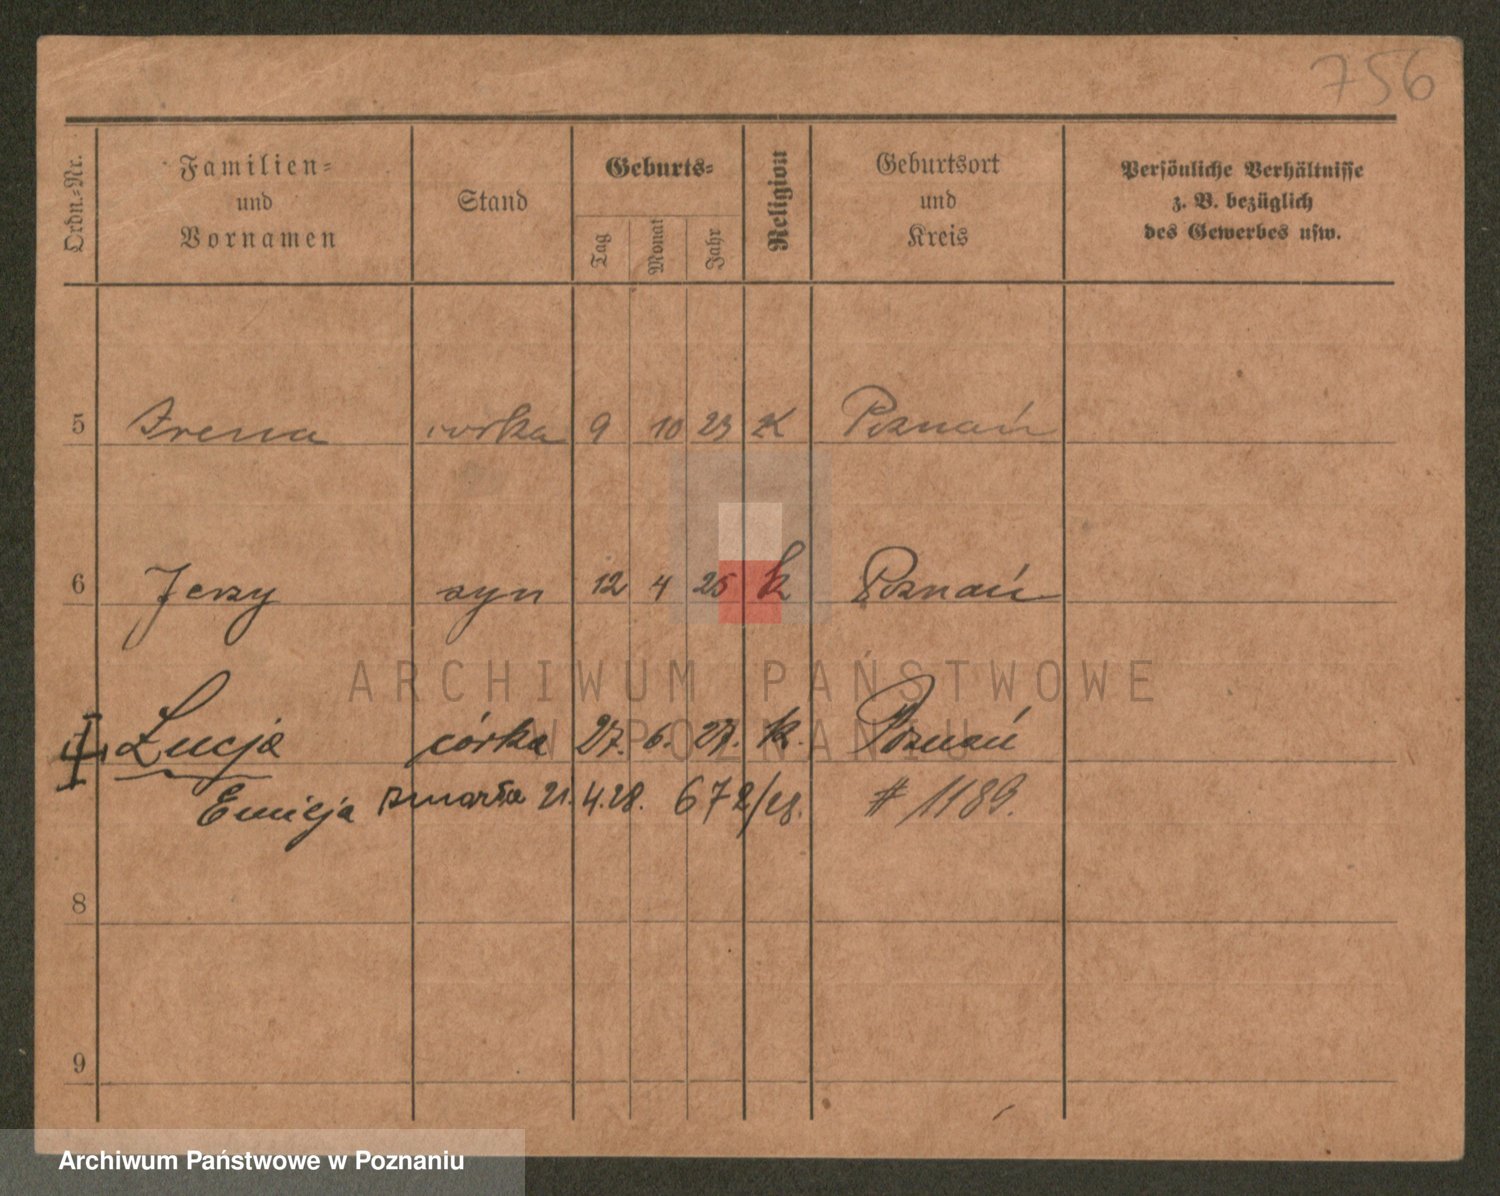 756
Ordn.-Nr. Familien- und Vornamen Stand Geburts- Tag Monat Jahr Religion Geburtsort und Kreis Persönliche Verhältnisse z. B. bezüglich des Gewerbes usw.
5 Irena córka 9 10 23 K Poznań
6 Jerzy syn 12 4 25 k Poznań
ARCHIWUM PAŃSTWOWE
W POZNANIU
Łucja córka 27. 6. 27. k. Poznań
Emilja zmarła 21.4.28. 672/ # 1189.
8
9
Archiwum Państwowe w Poznaniu